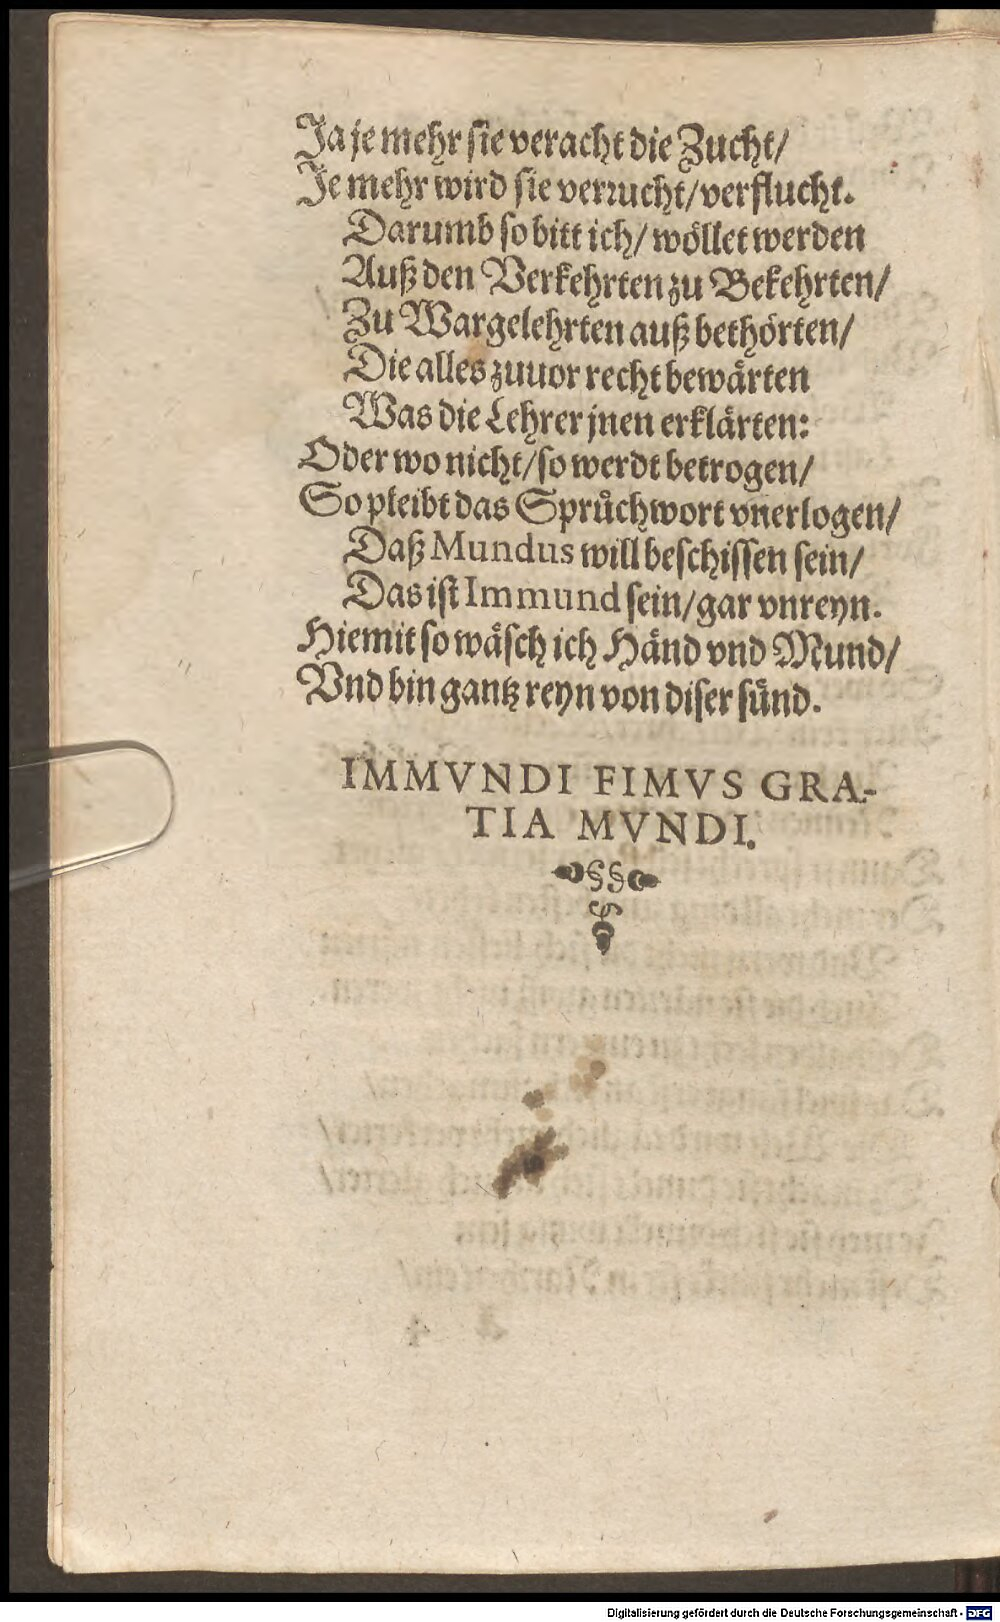 Ja je mehr sie veracht die Zucht/
Je mehr wird sie verrucht/verflucht.
Darumb so bitt ich/ wöllet werden
Auß den Verkehrten zu Bekehrten/
Zu Wargelehrten auß bethörten/
Die alles zuuor recht bewärten
Was die Lehrer jnen erklärten:
Oder wo nicht/so werdt betrogen/
So pleibt das Sprůchwort vnerlogen/
Daß Mundus will beschissen sein/
Das ist Immund sein/gar vnreyn.
Hiemit so wäsch ich Händ vnd Mund/
Vnd bin gantz reyn von diser sünd.
IMMVNDI FIMVS GRA-
TIA MVNDI.
Digitalisierung gefördert durch die Deutsche Forschungsgemeinschaft - DFG